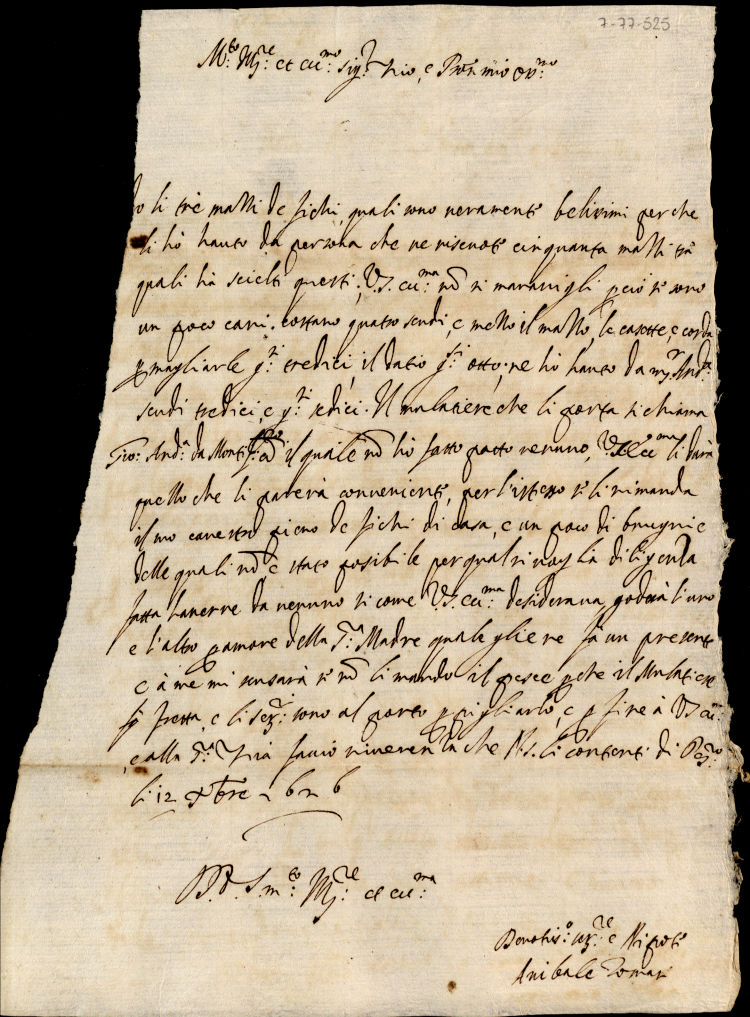 7-77-525
M.to Ill.re et ecc.mo Sig.r Zio, e Pron mio oss.mo
li tre mazzi de fichi, quali sono veramente belissimi perche
li hò hauto da persona che ne riscuote cinquanta mazzi tra
quali hà scielti questi; V.S. ecc.ma nō si maravigli pciò se sono
un poco cari. costano quatro scudi, e mezzo il mazzo, le casette, e corda
p magliarle g.i tredici, il datio g.i otto, ne hò hauto da m.r And.a
scudi tredici, e g.i sedici. Il mulatiere che li porta si chiama
Gio: And.a da Monti il quale nō hò fatto patto nenuno, V.S. ecc.ma li darà
quello che li parerà conveniente, per l'istesso se li rimanda
il suo canestro pieno de fichi di casa, e un poco di brugnie
delle quali nō è stato posibile per qual si voglia diligenza
fatta hauerne da nenuno si come V.S. ecc.ma desideraua, goderà l'uno
e l'altro p amore della S.ra Madre quale gliene fà un presente
e à me mi scusarà se nō li mando il pesce pche il Mulatiere
fretta, e li ser.i sono al porto p pigliarlo, e p fine à V.S. ecc.ma
e alla S.ra Zia faccio riverenza che N.S. li contenti di Pes.ro
li 12 Xbre 1626
D. V. S. m.to Ill.re et ecc.ma
Devotis.o ser.re e Nipote
Anibale